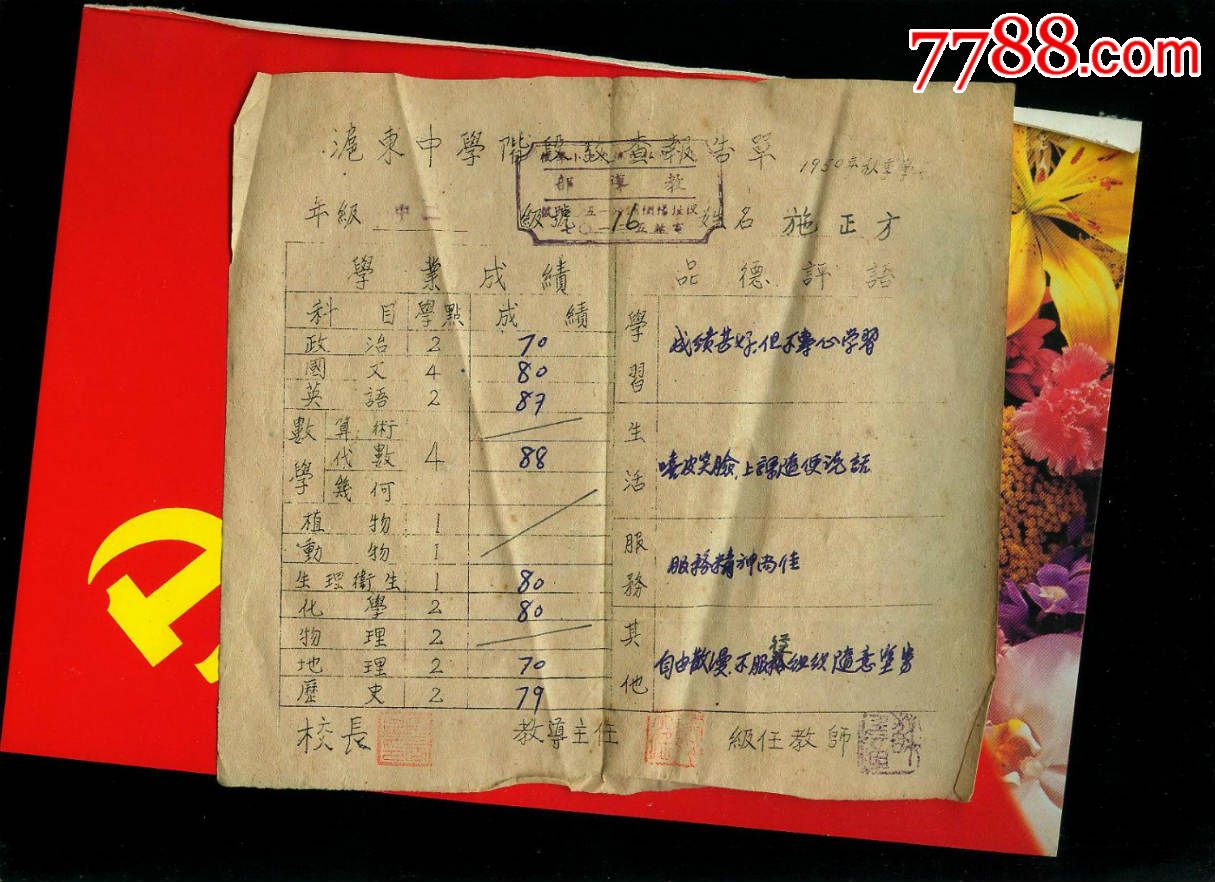 7788.com
滬東中學階段攷查報告單
1950年秋季第
教導部
年級 中二 級號 16 姓名 施正方
學業成績 品德評語
科目 學點 成績
政治 2 70
國文 4 80
英語 2 87
數學 算術
代數 4 88
幾何
植物 1
動物 1
生理衛生 1 80
化學 2 80
物理 2
地理 2 70
歷史 2 79
學習 成績甚好,但不專心学習
生活 嘻皮笑臉,上課隨便说話
服務 服務精神尚佳
其他 自由散漫,不服從組织隨意
校長 教導主任 級任教師